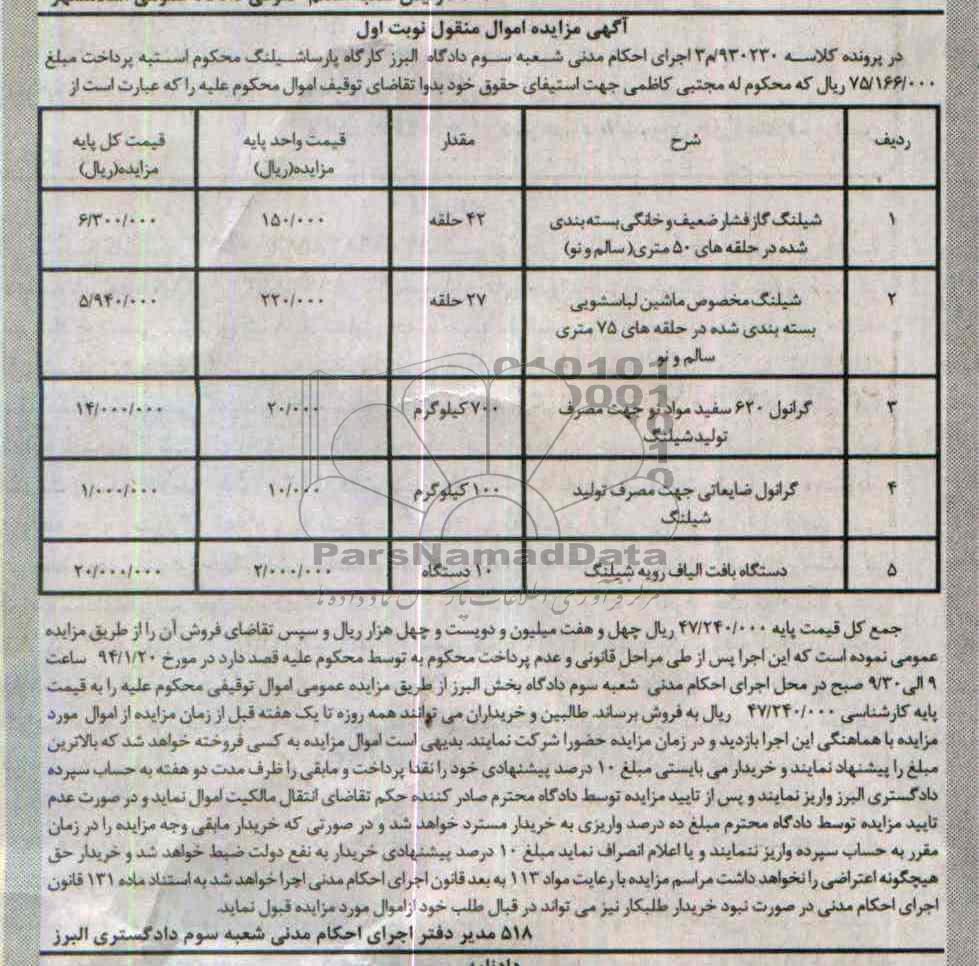 آگهی مزایده اموال منقول نوبت اول
در پرونده کلاسه ۹۳۰۲۳۰/م۳ اجرای احکام مدنی شعبه سوم دادگاه البرز کارگاه پارساشیلنگ محکوم استبه پرداخت مبلغ
۷۵/۱۶۶/۰۰۰ ریال که محکوم له مجتبی کاظمی جهت استیفای حقوق خود بدوا تقاضای توقیف اموال محکوم علیه را که عبارت است از
ردیف شرح مقدار قیمت واحد پایه مزایده(ریال) قیمت کل پایه مزایده(ریال)
۱ شیلنگ گاز فشار ضعیف و خانگی بسته بندی شده در حلقه های ۵۰ متری( سالم و نو) ۴۲ حلقه ۱۵۰/۰۰۰ ۶/۳۰۰/۰۰۰
۲ شیلنگ مخصوص ماشین لباسشویی بسته بندی شده در حلقه های ۷۵ متری سالم و نو ۲۷ حلقه ۲۲۰/۰۰۰ ۵/۹۴۰/۰۰۰
۳ گرانول ۶۲۰ سفید مواد نو جهت مصرف تولید شیلنگ ۷۰۰ کیلوگرم ۲۰/۰۰۰ ۱۴/۰۰۰/۰۰۰
۴ گرانول ضایعاتی جهت مصرف تولید شیلنگ ۱۰۰ کیلوگرم ۱۰/۰۰۰ ۱/۰۰۰/۰۰۰
۵ دستگاه بافت الیاف رویه شیلنگ ۱۰ دستگاه ۲/۰۰۰/۰۰۰ ۲۰/۰۰۰/۰۰۰
ParsNamadData
مرکز فرآوری اطلاعات پارس نماد داده ها
جمع کل قیمت پایه ۴۷/۲۴۰/۰۰۰ ریال چهل و هفت میلیون و دویست و چهل هزار ریال و سپس تقاضای فروش آن را از طریق مزایده
عمومی نموده است که این اجرا پس از طی مراحل قانونی و عدم پرداخت محکوم به توسط محکوم علیه قصد دارد در مورخ ۹۴/۱/۲۰ ساعت
۹ الی ۹/۳۰ صبح در محل اجرای احکام مدنی شعبه سوم دادگاه بخش البرز از طریق مزایده عمومی اموال توقیفی محکوم علیه را به قیمت
پایه کارشناسی ۴۷/۲۴۰/۰۰۰ ریال به فروش برساند. طالبین و خریداران می توانند همه روزه تا یک هفته قبل از زمان مزایده از اموال مورد
مزایده با هماهنگی این اجرا بازدید و در زمان مزایده حضورا شرکت نمایند. بدیهی است اموال مزایده به کسی فروخته خواهد شد که بالاترین
مبلغ را پیشنهاد نمایند و خریدار می بایستی مبلغ ۱۰ درصد پیشنهادی خود را نقدا پرداخت و مابقی را ظرف مدت دو هفته به حساب سپرده
دادگستری البرز واریز نمایند و پس از تایید مزایده توسط دادگاه محترم صادر کننده حکم تقاضای انتقال مالکیت اموال نماید و در صورت عدم
تایید مزایده توسط دادگاه محترم مبلغ ده درصد واریزی به خریدار مسترد خواهد شد و در صورتی که خریدار مابقی وجه مزایده را در زمان
مقرر به حساب سپرده واریز ننمایند و یا اعلام انصراف نماید مبلغ ۱۰ درصد پیشنهادی خریدار به نفع دولت ضبط خواهد شد و خریدار حق
هیچگونه اعتراضی را نخواهد داشت مراسم مزایده با رعایت مواد ۱۱۳ به بعد قانون اجرای احکام مدنی اجرا خواهد شد به استناد ماده ۱۳۱ قانون
اجرای احکام مدنی در صورت نبود خریدار طلبکار نیز می تواند در قبال طلب خود ازاموال مورد مزایده قبول نماید.
۵۱۸ مدیر دفتر اجرای احکام مدنی شعبه سوم دادگستری البرز